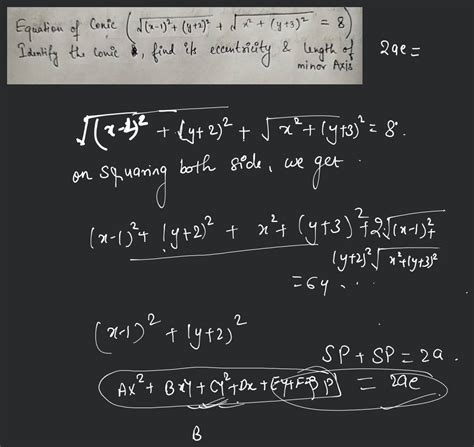 Equation of Conic ( √(x-1)² + (y+2)² + √x² + (y+3)² = 8 )
Identify the Conic , find its eccentricity & length of
minor Axis
2ae =
√(x-1)² + (y+2)² + √x² + (y+3)² = 8.
on squaring both side, we get .
(x-1)² + (y+2)² + x² + (y+3)² + 2.√(x-1)² +
(y+2)² √x² + (y+3)²
= 64 . . .
(x-1)² + (y+2)²
SP + SP = 2a .
Ax² + Bxy + Cy² + Dx + Ey + F = = 2ae
B